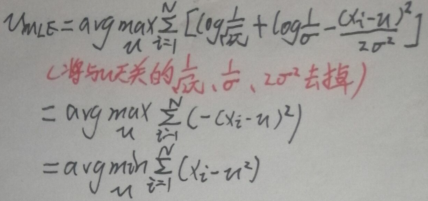 u_MLE = arg max_u Σ_{i=1}^{N} [log 1/√2π + log 1/σ - (x_i-u)²/2σ²]
(将与u无关的 1/√2π、1/σ、2σ² 去掉)
= arg max_u Σ_{i=1}^{N} (-(x_i-u)²)
= arg min_u Σ_{i=1}^{N} (x_i-u²)